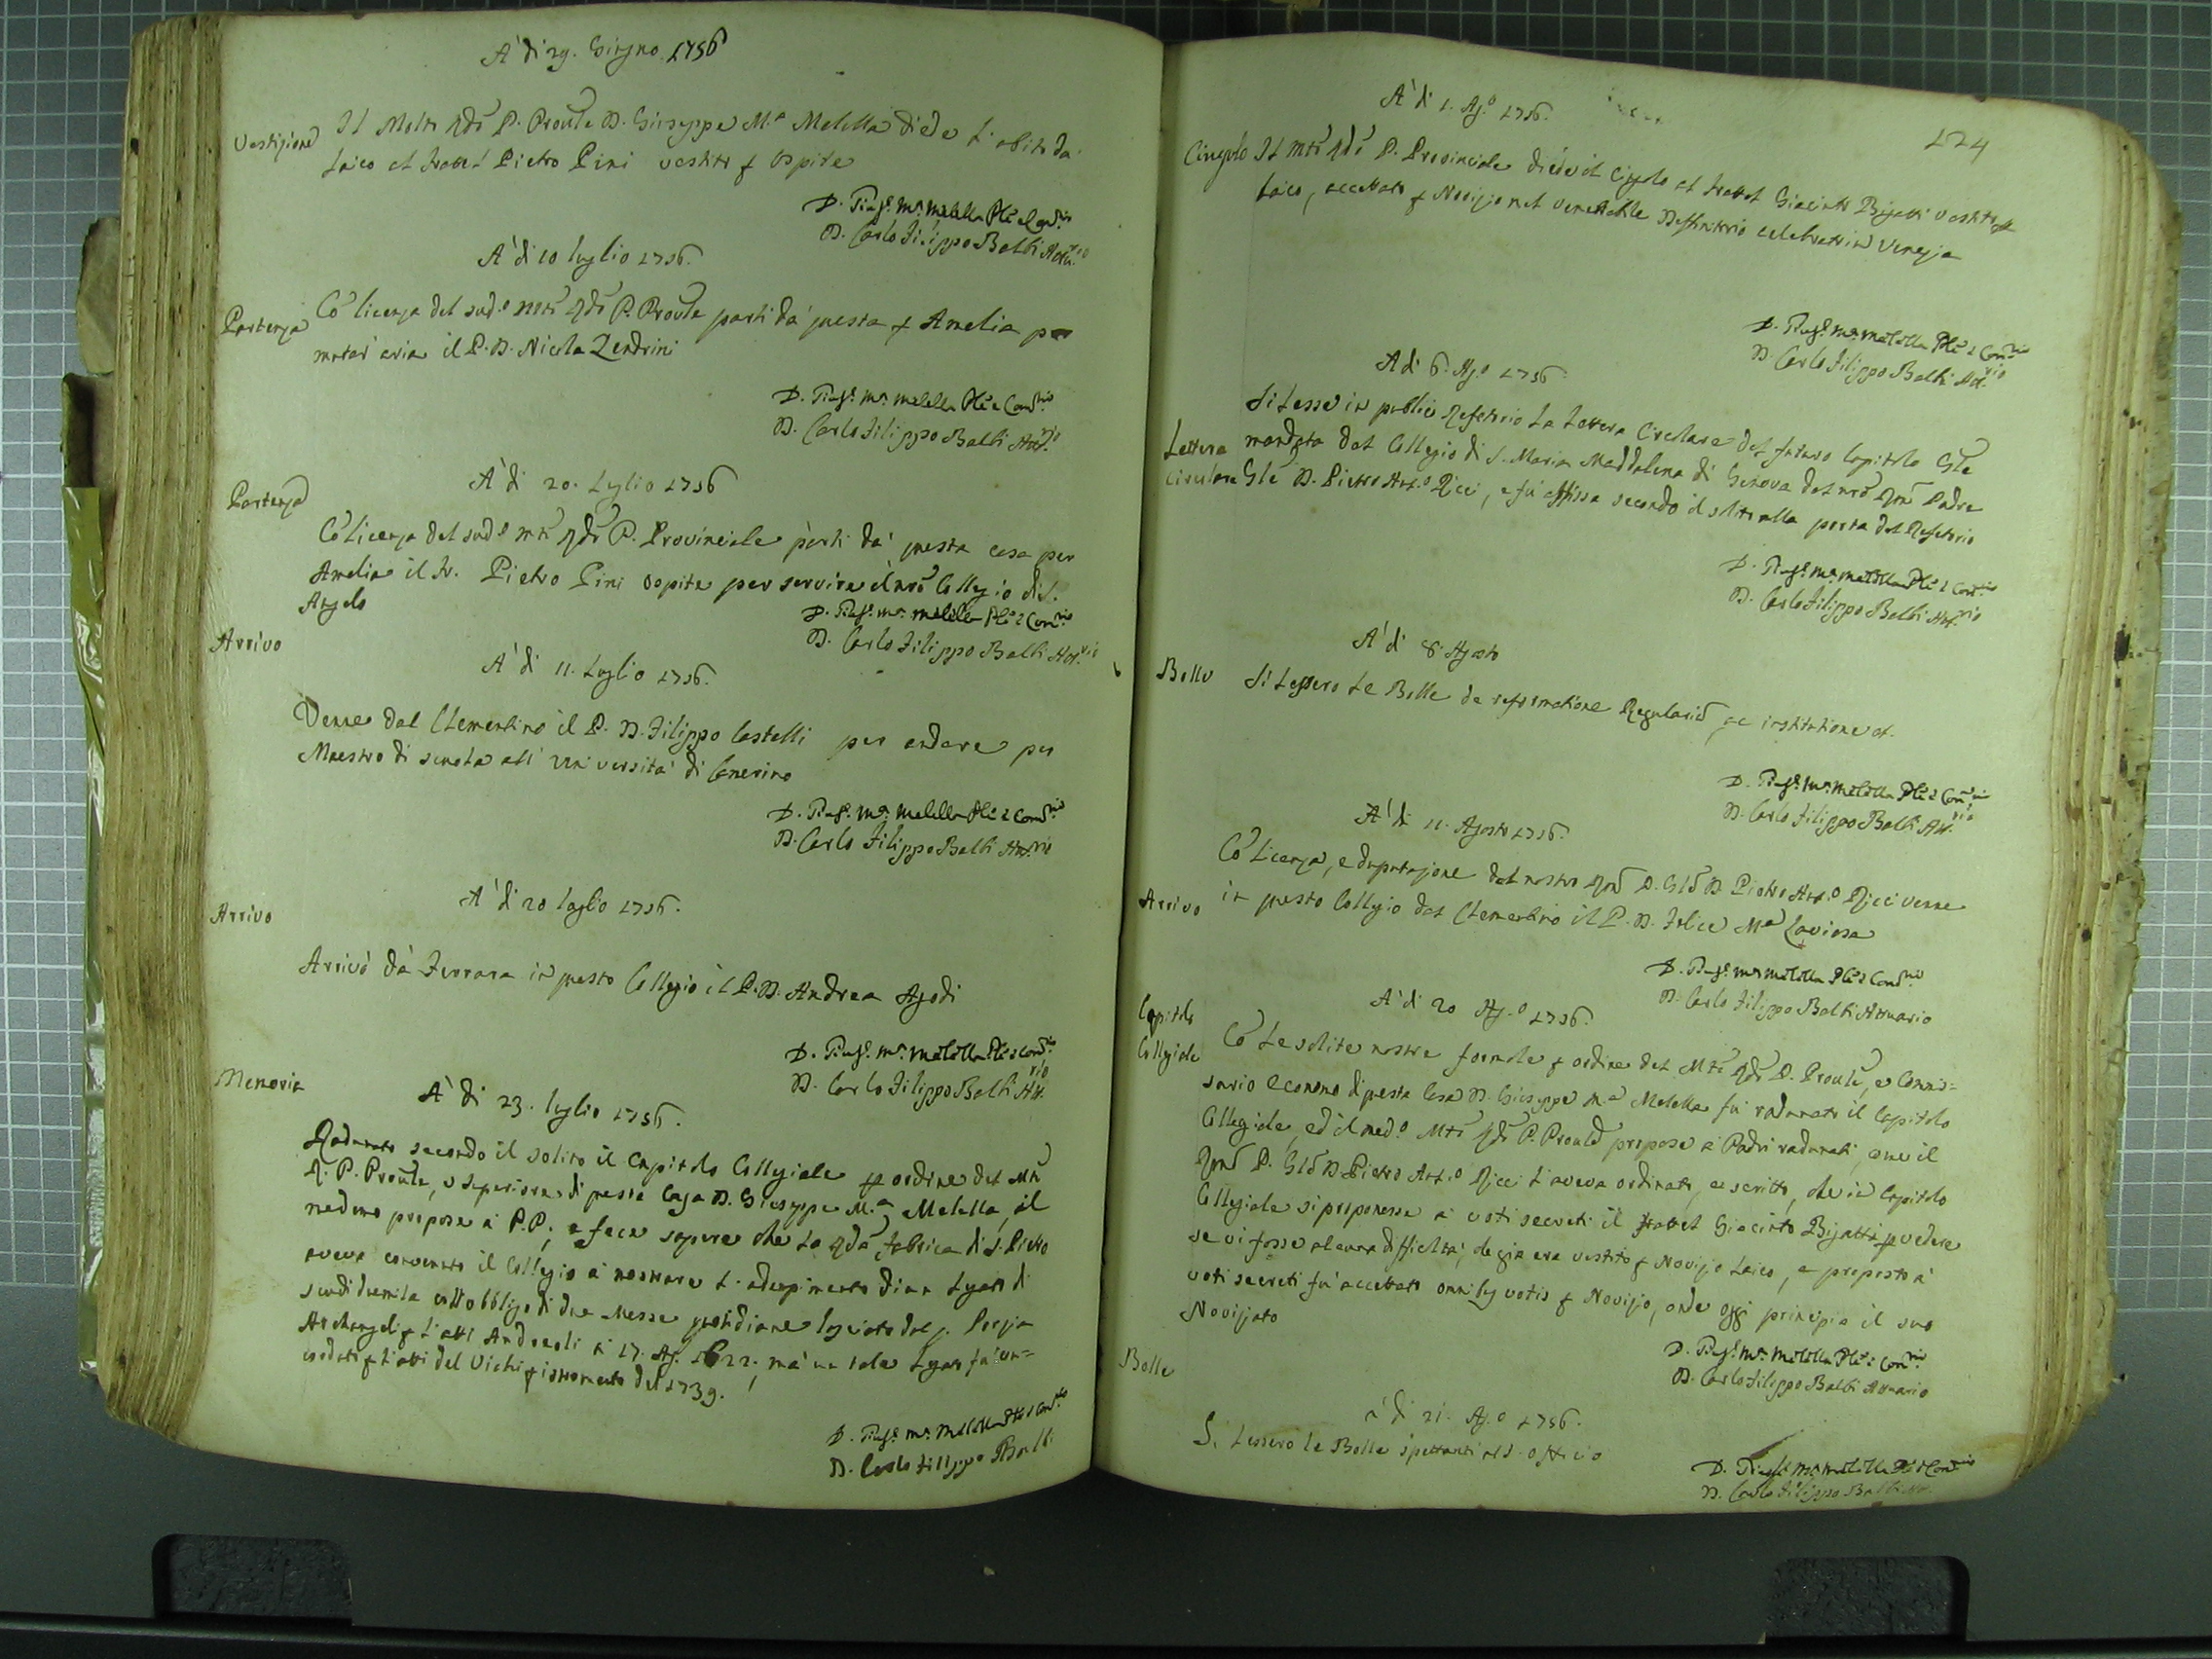 A' di 29. Giugno 1756
Vestizione
Il Molto Rdo P. Proule D. Giuseppe M.a Melella diede l'abito da
laico al Fratel Pietro Pini vestito p Ospite
D. Giuse. Ma. Melella Ple e Comrio
D. Carlo Filippo Balbi Attu.rio
A' di 10 luglio 1756.
Partenza
Co licenza del sud.o Mto Rdo P. Proule partì da questa p Amelia per
mutar aria il P. D. Nicola Zendrini
D. Giuse. Ma. Melella Ple e Comrio
D. Carlo Filippo Balbi Att.rio
A' di 20. Luglio 1756
Partenza
Co licenza del sud.o Mto Rdo P. Provinciale partì da questa casa per
Amelia il Fr. Pietro Pini ospite per servire il nro Collegio di S.
Angelo
D. Giuse. Ma. Melella Ple e Comrio
D. Carlo Filippo Balbi Att.rio
Arrivo
A' di 11. Luglio 1756.
Venne dal Clementino il P. D. Filippo Castelli per andare per
Maestro di scuola all' Università di Camerino
D. Giuse. Ma. Melella Ple e Comrio
D. Carlo Filippo Balbi Att.rio
A' di 20 luglio 1756.
Arrivo
Arrivò da Ferrara in questo Collegio il P. D. Andrea Agodi
D. Giuse. Ma. Melella Ple e Comrio
D. Carlo Filippo Balbi Att.rio
Memoria
A' di 23. luglio 1756.
Radunato secondo il solito il Capitolo Collegiale p ordine del Mto
R. P. Proule, e Superiore di questa Casa D. Giuseppe M.a Melella, il
medemo propose a P.P., e fece sapere che la Rda Fabrica di S. Pietro
aveva convenuto il Collegio a mostrare l'adempimento di un Legato di
scudi duemila coll'obbligo di due Messe quotidiane lasciato dal q.
Archangeli p l'atti Andreoli a 17. Ag. 1622; ma un tale Legato fu
p l'atti del Vichi p istromento del 1739.
D. Giuse. Ma. Melella Ple e Comrio
D. Carlo Filippo Balbi
124
A' di 1. Ag.o 1756.
Cingolo
Il Mto Rdo P. Provinciale diede il Cingolo al Fratel Giacinto Bigatti vestito p
laico, accettato p Novizio nel Venerabile Deffinitorio celebrato in Venezia
D. Giuse. Ma. Melella Ple e Comrio
D. Carlo Filippo Balbi Att.rio
A di 6. Ag.o 1756.
Lettera
circolare
Si lesse in publico Refetorio la Lettera Circolare del futuro Capitolo Gle
mandata dal Collegio di S. Maria Maddalena di Genova dal nro Rmo Padre
Gle D. Pietro Ant.o Ricci, e fu affissa secondo il solito alla porta del Refetorio
D. Giuse. Ma. Melella Ple e Comrio
D. Carlo Filippo Balbi Att.rio
A' di 8. Agosto
Bolle
Si lessero le Bolle de reformatione Regularium, ac institutione et.
D. Giuse. Ma. Melella Ple e Comrio
D. Carlo Filippo Balbi Att.rio
A' di 11. Agosto 1756.
Arrivo
Co licenza, e deputazione del nostro Rmo P. Gle D. Pietro Ant.o Ricci venne
in questo Collegio dal Clementino il P. D. Felice Ma Laviosa
D. Giuse. Ma. Melella Ple e Comrio
D. Carlo Filippo Balbi Attuario
A' di 20 Ag.o 1756.
Capitolo
Collegiale
Co le solite nostre formole p ordine del Mto Rdo P. Proule, e Commis=
sario Economo di questa Casa D. Giuseppe M.a Melella fu radunato il Capitolo
Collegiale, ed il med.o Mto Rdo P. Proule propose a Padri radunati, come il
Rmo P. Gle D. Pietro Ant.o Ricci l'aveva ordinato, e scritto, che in Capitolo
Collegiale si proponesse a voti secreti il Fratel Giacinto Bigatti p vedere
se vi fosse alcuna difficoltà, che già era vestito p Novizio laico, e proposto a'
voti secreti fu accettato omnibus votis p Novizio, onde oggi principia il suo
Noviziato
D. Giuse. Ma. Melella Ple e Comrio
D. Carlo Filippo Balbi Attuario
Bolle
a' di 21. Ag.o 1756.
Si lessero le Bolle spettanti al S. Officio
D. Giuse. Ma. Melella Ple e Comrio
D. Carlo Filippo Balbi Att.